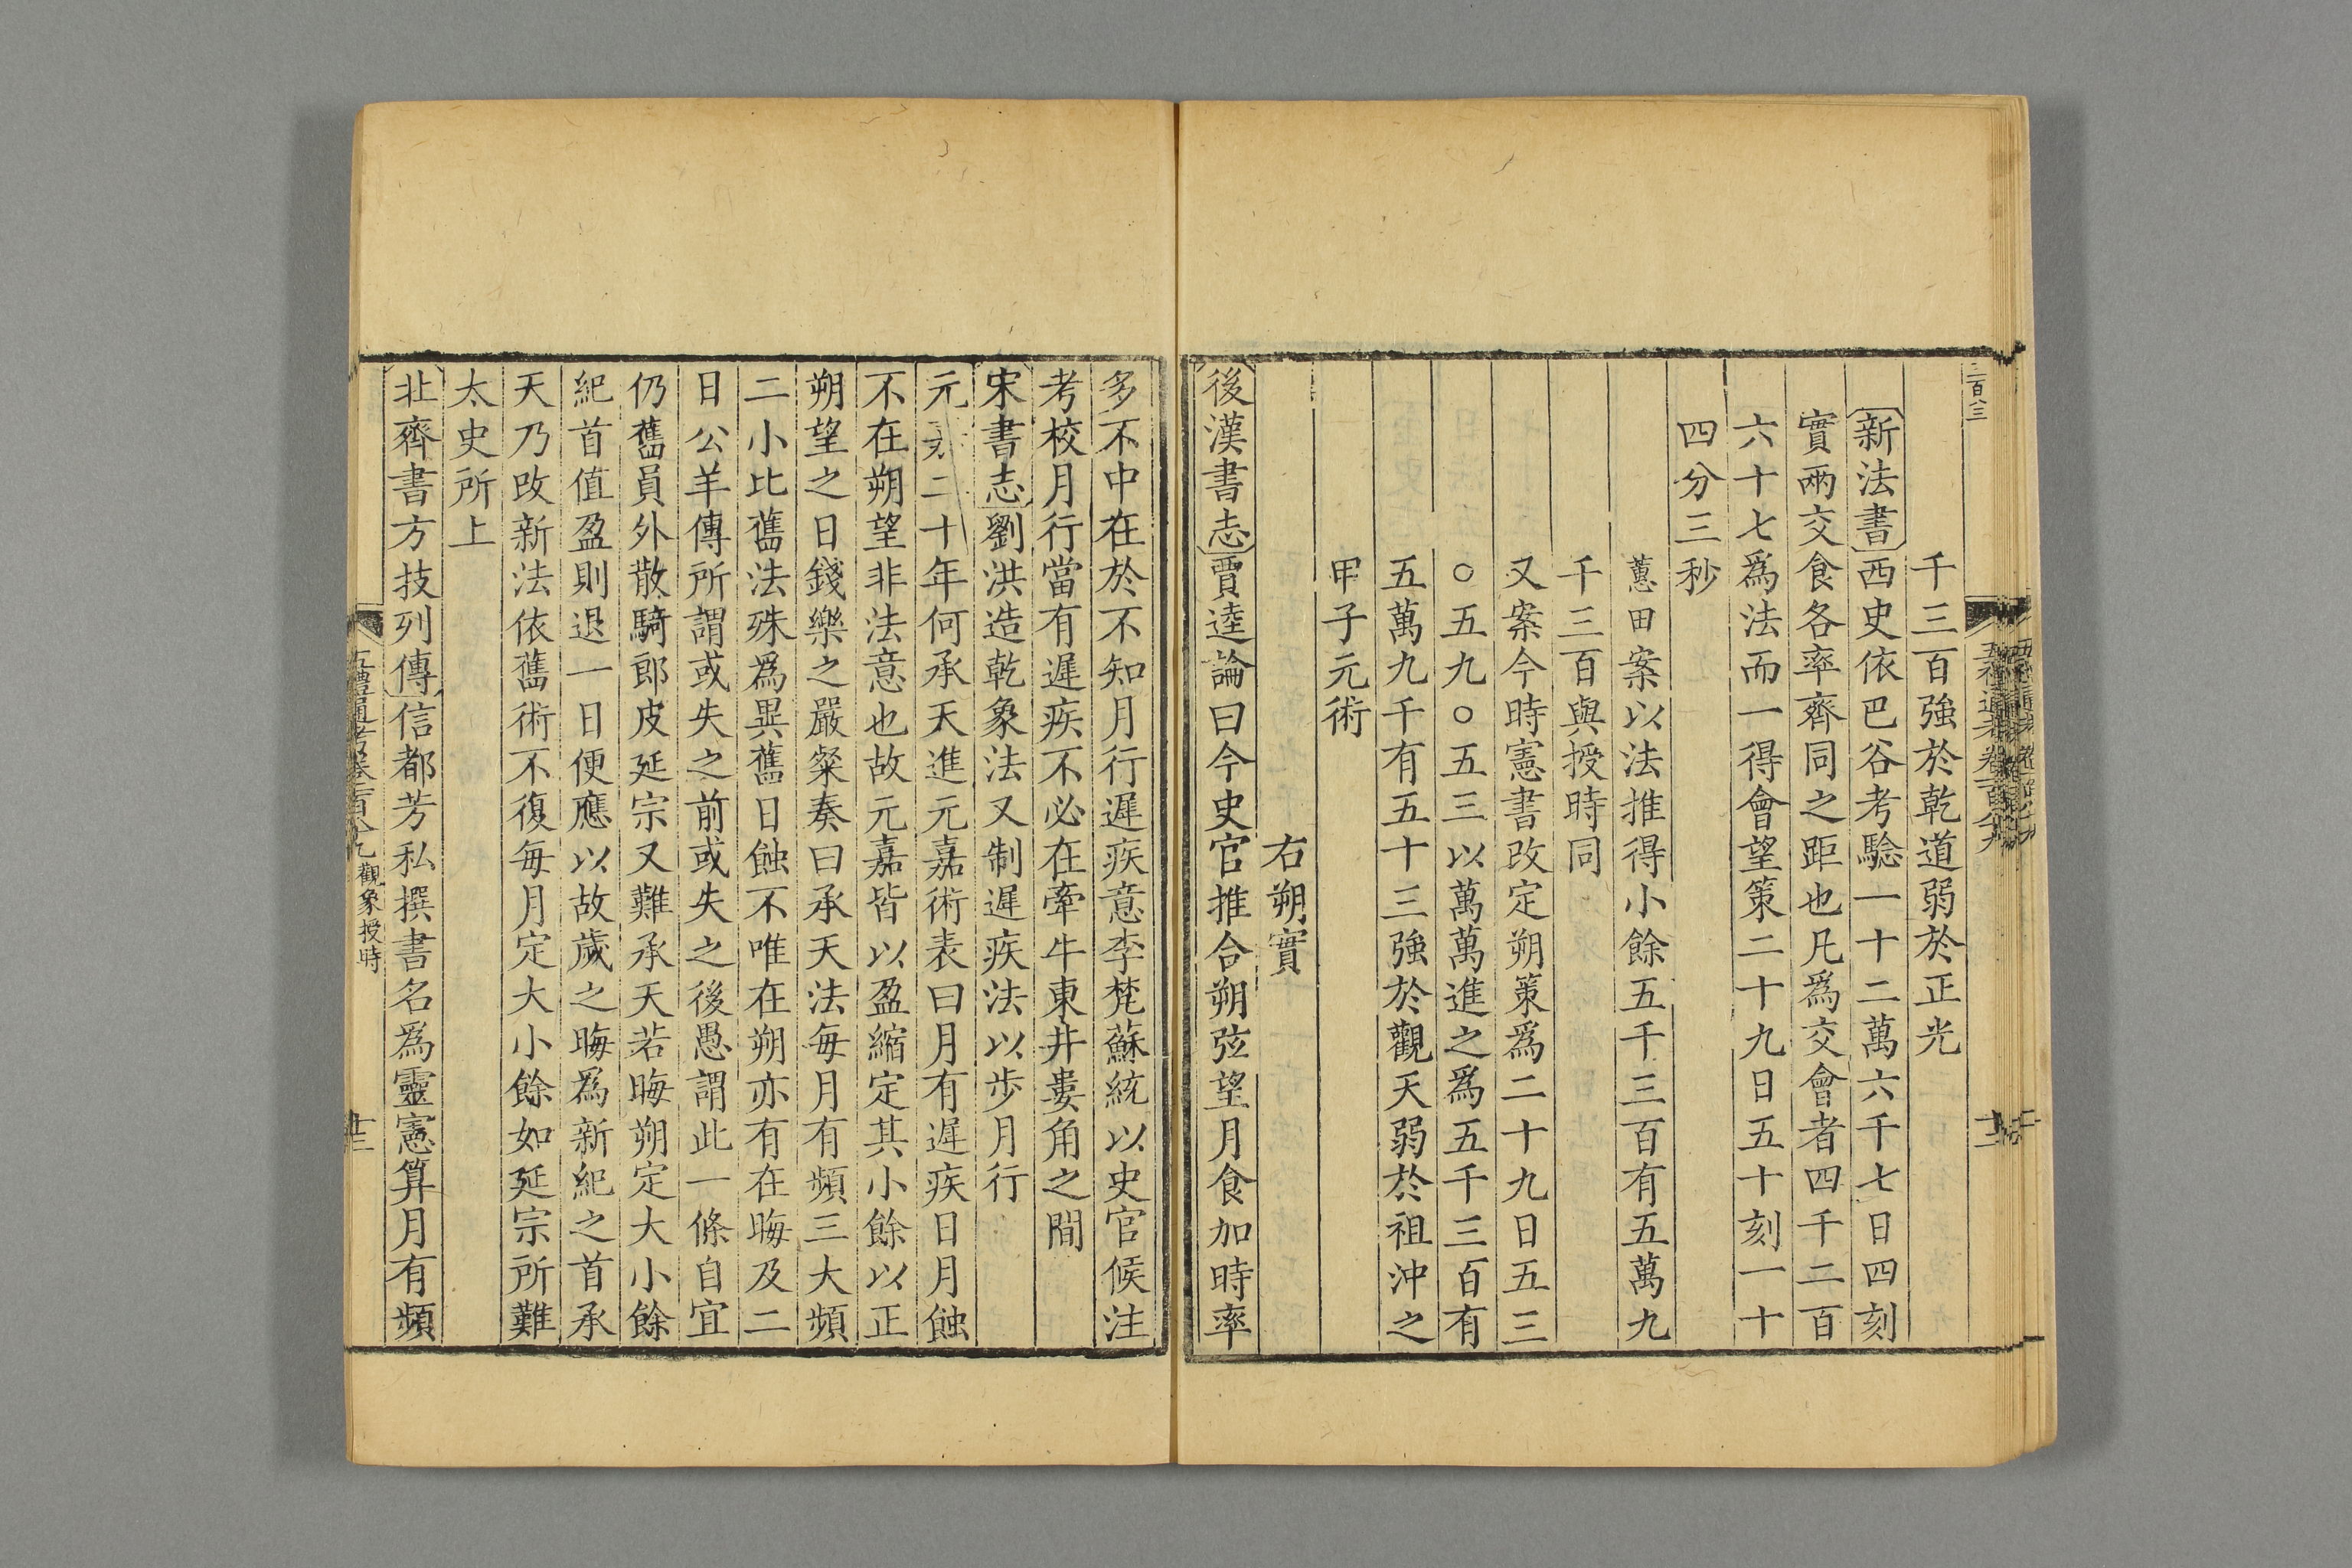 千三百強於乾道弱於正光
新法書西史依巴谷考騐一十二萬六千七日四刻
實兩交食各率齊同之距也凡爲交會者四千二百
六十七爲法而一得會望策二十九日五十刻一十
四分三秒
蕙田案以法推得小餘五千三百有五萬九
千三百與授時同
又案今時憲書改定朔策爲二十九日五三
○五九○五三以萬萬進之爲五千三百有
五萬九千有五十三強於觀天弱於祖沖之
甲子元術
右朔實
後漢書志賈逵論曰今史官推合朔弦望月食加時率
多不中在於不知月行遲疾意李梵蘇統以史官候注
考校月行當有遲疾不必在牽牛東井婁角之間
宋書志劉洪造乾象法又制遲疾法以步月行
元嘉二十年何承天進元嘉術表曰月有遲疾日月蝕
不在朔望非法意也故元嘉皆以盈縮定其小餘以正
朔望之日錢樂之嚴粲奏曰承天法每月有頻三大頻
二小比舊法殊爲異舊日蝕不唯在朔亦有在晦及二
日公羊傳所謂或失之前或失之後愚謂此一條自宜
仍舊員外散騎郎皮延宗又難承天若晦朔定大小餘
紀首值盈則退一日便應以故歲之晦爲新紀之首承
天乃改新法依舊術不復每月定大小餘如延宗所難
太史所上
北齊書方技列傳信都芳私撰書名爲靈憲算月有頻
五禮通考卷一百八十九 觀象授時